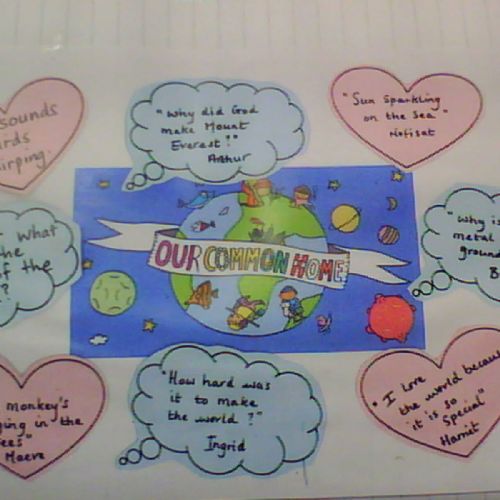 sounds
"Why did God
make Mount
Everest?"
Arthur
"Sun Sparkling
on the Sea"
Nofisat
What
the
of the
?
OUR COMMON HOME
"Why is
metal
ground
"How hard was
it to make
the world?"
Ingrid
monkey's
in the
Maeve
"I love
the world because
it is so
Special"
Harriet